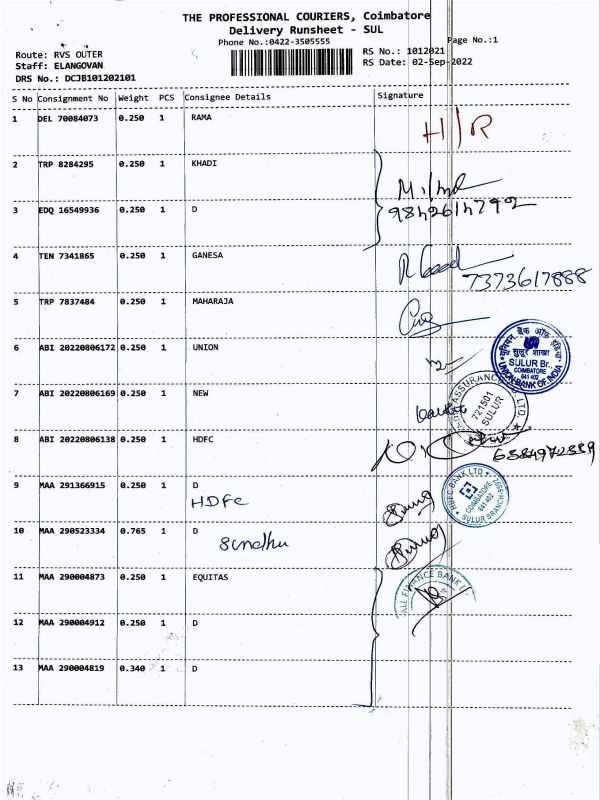 THE PROFESSIONAL COURIERS, Coimbatore
Delivery Runsheet - SUL
Phone No.:0422-3505555
Page No.:1
Route: RVS OUTER
RS No.: 1012021
Staff: ELANGOVAN
RS Date: 02-Sep-2022
DRS No.: DCJB101202101
S No Consignment No Weight PCS Consignee Details Signature
1 DEL 70084073 0.250 1 RAMA
H/R
2 TRP 8284295 0.250 1 KHADI
3 EDQ 16549936 0.250 1 D
9842614792
4 TEN 7341865 0.250 1 GANESA
7373617888
5 TRP 7837484 0.250 1 MAHARAJA
6 ABI 20220806172 0.250 1 UNION
यूनियन बैंक ऑफ इंडिया
सुलूर शाखा
SULUR Br.,
COIMBATORE
641 402
UNION BANK OF INDIA
7 ABI 20220806169 0.250 1 NEW
ASSURANCE CO. LTD.
721501
SULUR
8 ABI 20220806138 0.250 1 HDFC
9 MAA 291366915 0.250 1 D
HDFC
HDFC BANK LTD
COIMBATORE
641 402
SULUR BRANCH
10 MAA 290523334 0.765 1 D
Sindhu
11 MAA 290004873 0.250 1 EQUITAS
ALL FINANCE BANK LTD
12 MAA 290004912 0.250 1 D
13 MAA 290004819 0.340 1 D